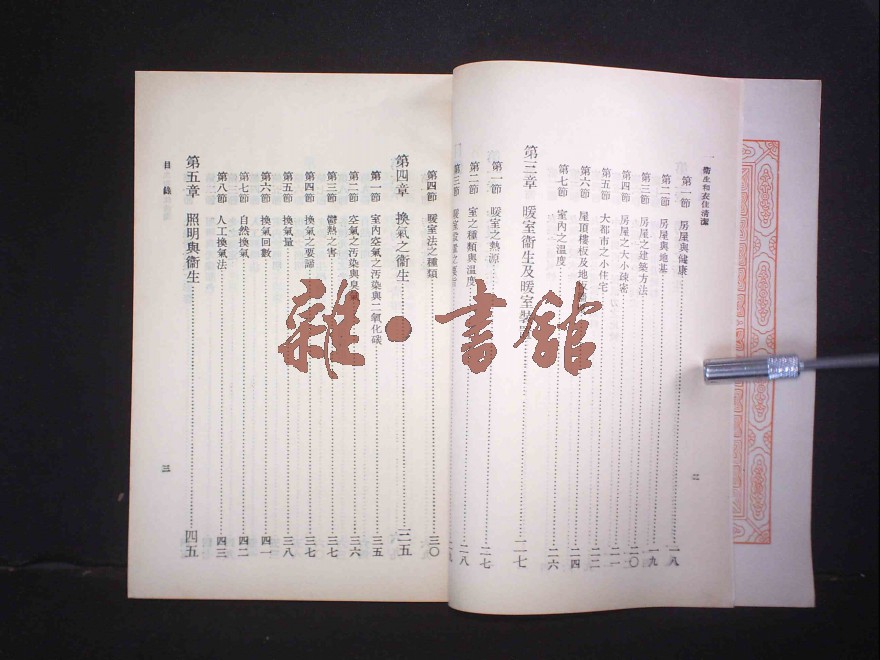 衞生和衣住清潔
第一節　房屋與健康……一八
第二節　房屋與地基……一九
第三節　房屋之建築方法……二〇
第四節　房屋之大小疎密……二一
第五節　大都市之小住宅……二二
第六節　屋頂樓板及地板……二四
第七節　室內之溫度……二六
第三章　暖室衞生及暖室裝……二七
第一節　暖室之熱源……二七
第二節　室之種類與溫度……二八
第三節　暖室
二
第四節　暖室法之種類……三〇
第四章　換氣之衞生……三五
第一節　室內空氣之汚染與二氧化碳……三五
第二節　空氣之汚染與臭氣……三六
第三節　鬱熱之害……三七
第四節　換氣之要歸……三七
第五節　換氣量……三八
第六節　換氣回數……四一
第七節　自然換氣……四二
第八節　人工換氣法……四三
第五章　照明與衞生……四五
目錄
三
雜·書館